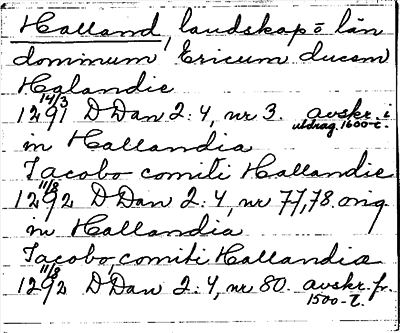 Halland, landskap o län
dominum Ericum ducem
Halandie
14/3
1291 DDan 2:4, nr 3. avskr. i
utdrag. 1600-t.
in Hallandia
Jacobo comiti Hallandie
11/8
1292 DDan 2:4, nr 77,78. orig
in Hallandia
Jacobo, comiti Hallandia
11/8
1292 DDan 2:4, nr 80. avskr. fr.
1500-t.